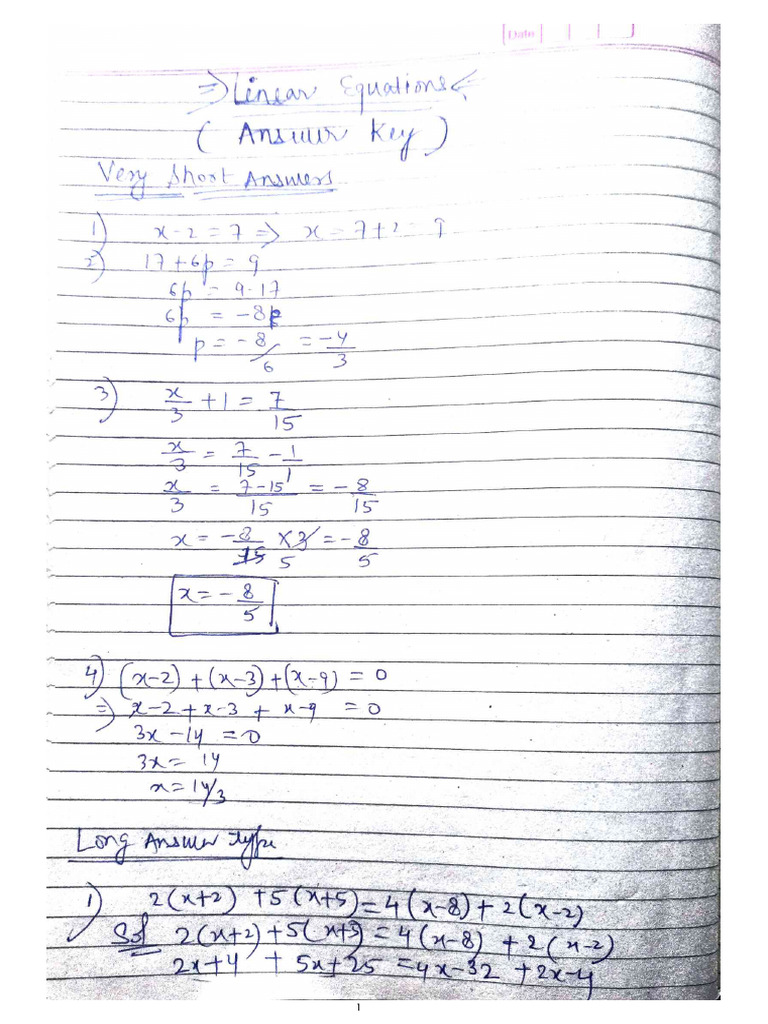 Date
⇒ Linear Equations ⇐
( Answer Key )
Very Short Answers
1) x-2 = 7 ⇒ x = 7+2 = 9
2) 17+6p = 9
6p = 9-17
6p = -8
p = -8/6 = -4/3
3) x/3 + 1 = 7/15
x/3 = 7/15 - 1/1
x/3 = 7-15/15 = -8/15
x = -8/15 × 3 = -8/5
x = -8/5
4) (x-2) + (x-3) + (x-9) = 0
⇒ x-2 + x-3 + x-9 = 0
3x - 14 = 0
3x = 14
x = 14/3
Long Answer type
1) 2(x+2) + 5(x+5) = 4(x-8) + 2(x-2)
Sol 2(x+2) + 5(x+5) = 4(x-8) + 2(x-2)
2x+4 + 5x+25 = 4x-32 + 2x-4
1